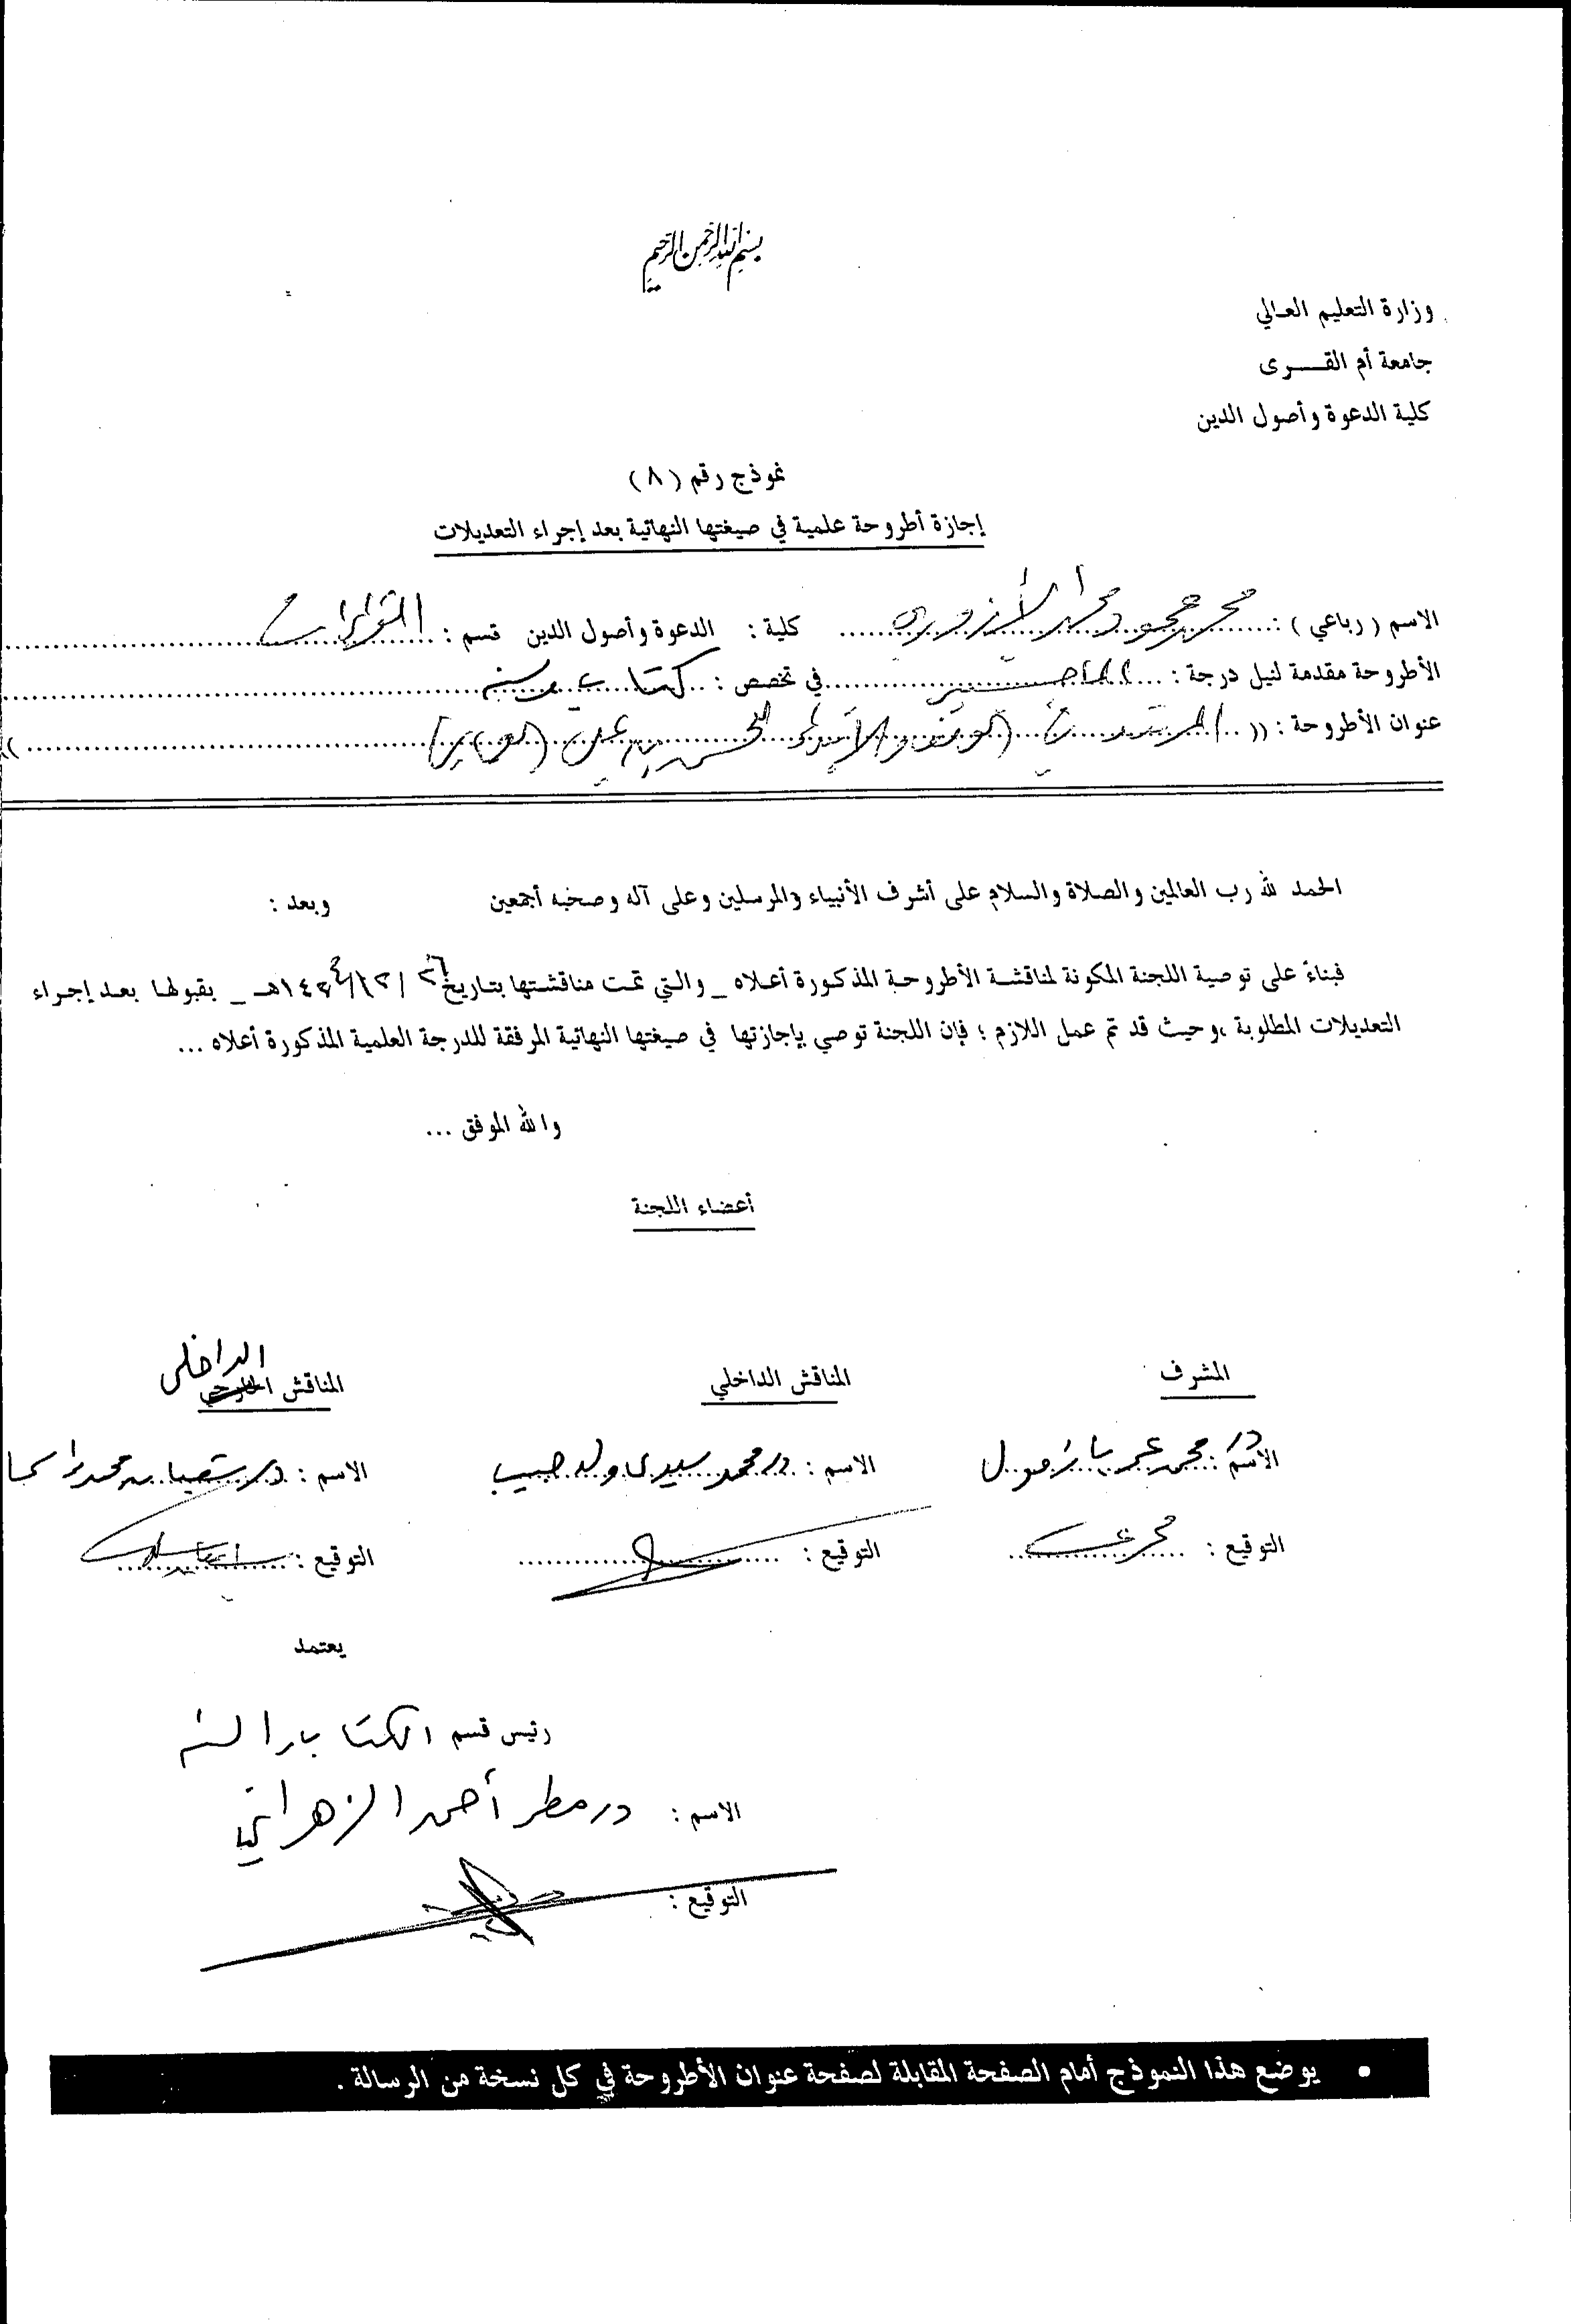 بسم الله الرحمن الرحيم
وزارة التعليم العالي
جامعة أم القــــرى
كلية الدعوة وأصول الدين
نموذج رقم (٨)
إجازة أطروحة علمية في صيغتها النهائية بعد إجراء التعديلات
الاسم (رباعي) : محمد محمود محمد الأزوري كلية : الدعوة وأصول الدين قسم : القراءات
الأطروحة مقدمة لنيل درجة : الماجستير في تخصص : كتاب وسنة
عنوان الأطروحة : (( المرشد في الوقف والابتداء للحسن بن علي العماني ))
الحمد لله رب العالمين والصلاة والسلام على أشرف الأنبياء والمرسلين وعلى آله وصحبه أجمعين وبعد :
فبناءً على توصية اللجنة المكونة لمناقشة الأطروحة المذكورة أعلاه _ والتي تمت مناقشتها بتاريخ ٢٦ / ١٢ / ١٤٢٤هـ _ بقبولها بعد إجراء
التعديلات المطلوبة ،وحيث قد تم عمل اللازم ؛ فإن اللجنة توصي بإجازتها في صيغتها النهائية المرفقة للدرجة العلمية المذكورة أعلاه ...
والله الموفق ...
أعضاء اللجنة
المشرف المناقش الداخلي المناقش الداخلي
الاسم : د. محمد عمر بازمول الاسم : د. محمد سيدي ولد حبيب الاسم : د. شعبان محمد
التوقيع : التوقيع : التوقيع :
يعتمد
رئيس قسم الكتاب والسنة
الاسم : د. مطر أحمد الزهراني
التوقيع :
• يوضع هذا النموذج أمام الصفحة المقابلة لصفحة عنوان الأطروحة في كل نسخة من الرسالة .